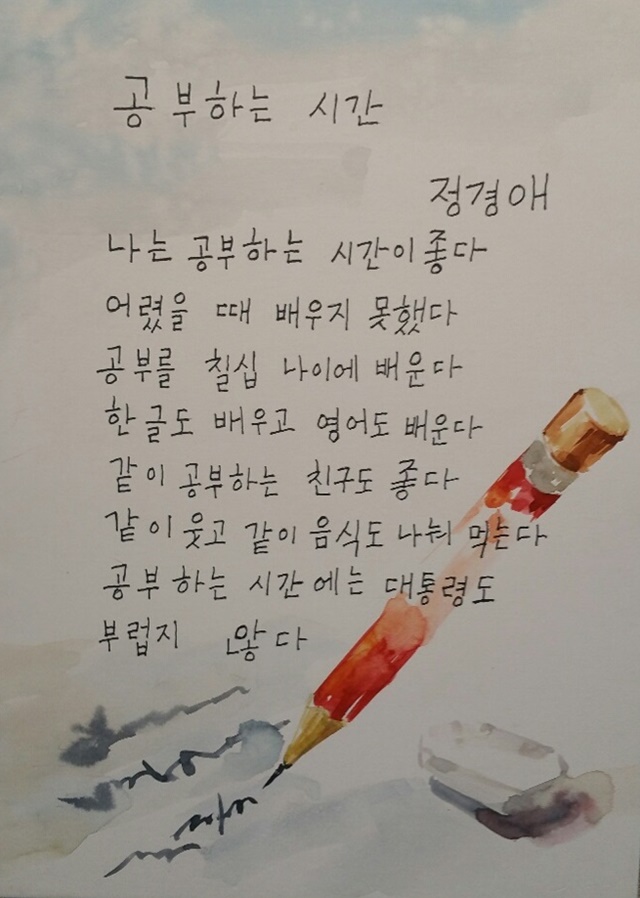 공부하는 시간
정경애
나는 공부하는 시간이 좋다
어렸을 때 배우지 못했다
공부를 칠십 나이에 배운다
한글도 배우고 영어도 배운다
같이 공부하는 친구도 좋다
같이 웃고 같이 음식도 나눠 먹는다
공부하는 시간에는 대통령도
부럽지 않다